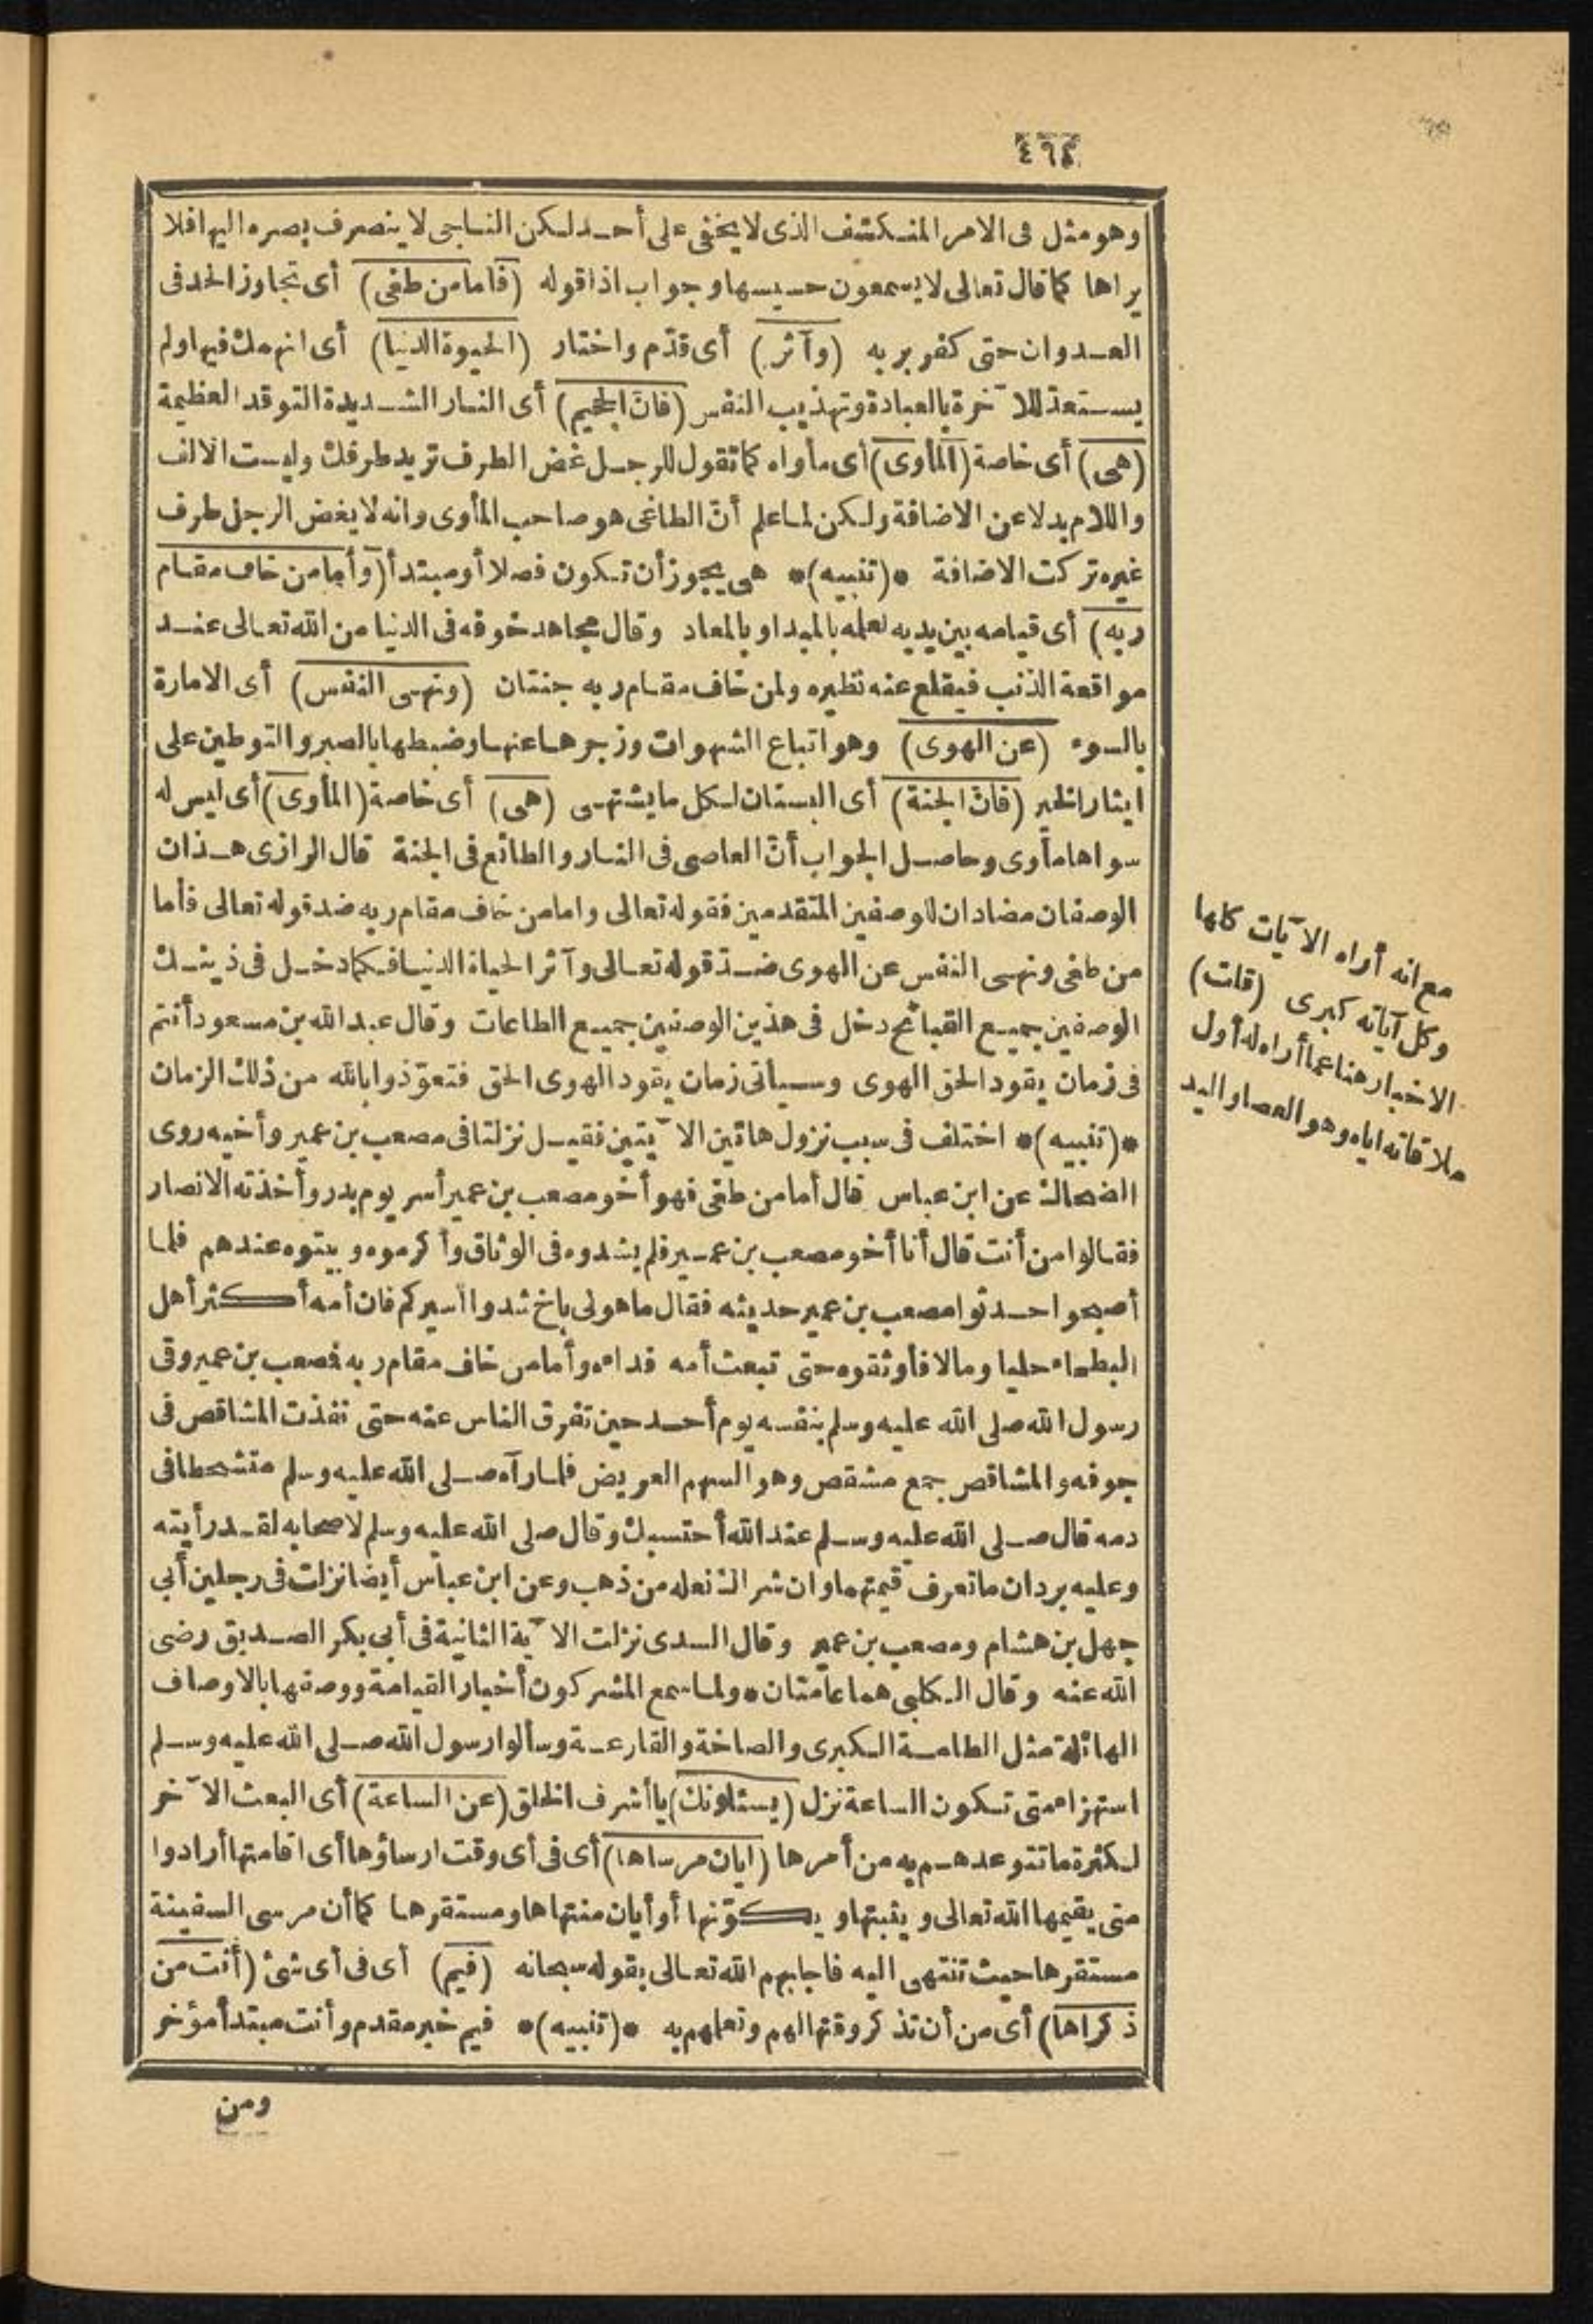 ٤٦٤
وهو مثل فى الامر المنكشف الذى لا يخفى على أحد لكن الناجى لا ينصرف بصره اليها فلا
يراها كما قال تعالى لا يسمعون حسيسها وجواب اذا قوله (فأما من طغى) أى تجاوز الحد فى
العدوان حتى كفر بربه (وآثر) أى قدّم واختار (الحيوة الدنيا) أى انهمك فيها ولم
يستعدّ للآخرة بالعبادة وتهذيب النفس (فانّ الجحيم) أى النار الشديدة التوقد العظيمة
(هى) أى خاصة (المأوى) أى مأواه كما تقول للرجل غض الطرف تريد طرفك وليست الالف
واللام بدلا عن الاضافة ولكن لما علم أنّ الطاغى هو صاحب المأوى وانه لا يغض الرجل طرف
غيره تركت الاضافة *(تنبيه)* هى يجوز أن تكون فصلا أو مبتدأ (وأما من خاف مقام
ربه) أى قيامه بين يديه لعلمه بالمبدا وبالمعاد وقال مجاهد خوفه فى الدنيا من الله تعالى عند
مواقعة الذنب فيقلع عنه نظيره ولمن خاف مقام ربه جنتان (ونهى النفس) أى الامارة
بالسوء (عن الهوى) وهو اتباع الشهوات وزجرها عنها وضبطها بالصبر والتوطين على
ايثار الخير (فانّ الجنة) أى البستان لكل ما يشتهى (هى) أى خاصة (المأوى) أى ليس له
سواها مأوى وحاصل الجواب أنّ العاصى فى النار والطائع فى الجنة قال الرازى هذان
الوصفان مضادان للوصفين المتقدمين فقوله تعالى واما من خاف مقام ربه ضد قوله تعالى فأما
من طغى ونهى النفس عن الهوى ضدّ قوله تعالى وآثر الحياة الدنيا فكما دخل فى ذينك
الوصفين جميع القبائح دخل فى هذين الوصفين جميع الطاعات وقال عبد الله بن مسعود أنتم
فى زمان يقود الحق الهوى وسيأتى زمان يقود الهوى الحق فتعوّذوا بالله من ذلك الزمان
*(تنبيه)* اختلف فى سبب نزول هاتين الآيتين فقيل نزلتا فى مصعب بن عمير وأخيه روى
الضحاك عن ابن عباس قال أما من طغى فهو أخو مصعب بن عمير أسر يوم بدر وأخذته الانصار
فقالوا من أنت قال أنا أخو مصعب بن عمير فلم يشدوه فى الوثاق وأكرموه وبيتوه عندهم فلما
أصبحوا حدثوا مصعب بن عمير حديثه فقال ما هو لى باخ شدوا أسيركم فان أمه أكثر أهل
البطحاء حليا ومالا فأوثقوه حتى تبعث أمه فداءه وأما من خاف مقام ربه فمصعب بن عمير وقى
رسول الله صلى الله عليه وسلم بنفسه يوم أحد حين تفرق الناس عنه حتى نفذت المشاقص فى
جوفه والمشاقص جمع مشقص وهو السهم العريض فلما رآه صلى الله عليه وسلم متشحطا فى
دمه قال صلى الله عليه وسلم عند الله أحتسبك وقال صلى الله عليه وسلم لاصحابه لقد رأيته
وعليه بردان ما تعرف قيمتهما وان شراك نعله من ذهب وعن ابن عباس أيضا نزلت فى رجلين أبى
جهل بن هشام ومصعب بن عمير وقال السدى نزلت الآية الثانية فى أبى بكر الصديق رضى
الله عنه وقال الكلبى هما عامّتان * ولما سمع المشركون أخبار القيامة ووصفها بالاوصاف
الهائلة مثل الطامة الكبرى والصاخة والقارعة وسألوا رسول الله صلى الله عليه وسلم
استهزاء متى تكون الساعة نزل (يسئلونك) يا أشرف الخلق (عن الساعة) أى البعث الآخر
لكثرة ما تتوعدهم به من أمرها (ايان مرساها) أى فى أى وقت ارساؤها أى اقامتها أرادوا
متى يقيمها الله تعالى ويثبتها ويكوّنها أو أيان منتهاها ومستقرها كما أن مرسى السفينة
مستقرها حيث تنتهى اليه فاجابهم الله تعالى بقوله سبحانه (فيم) أى فى أى شئ (أنت من
ذكراها) أى من أن تذكر وقتها لهم وتعلمهم به *(تنبيه)* فيم خبر مقدم وأنت مبتدأ مؤخر
ومن
مع انه أراه الآيات كلها
وكل آياته كبرى (قلت)
الاخبار هنا عما أراه له أول
ملاقاته اياه وهو العصا واليد